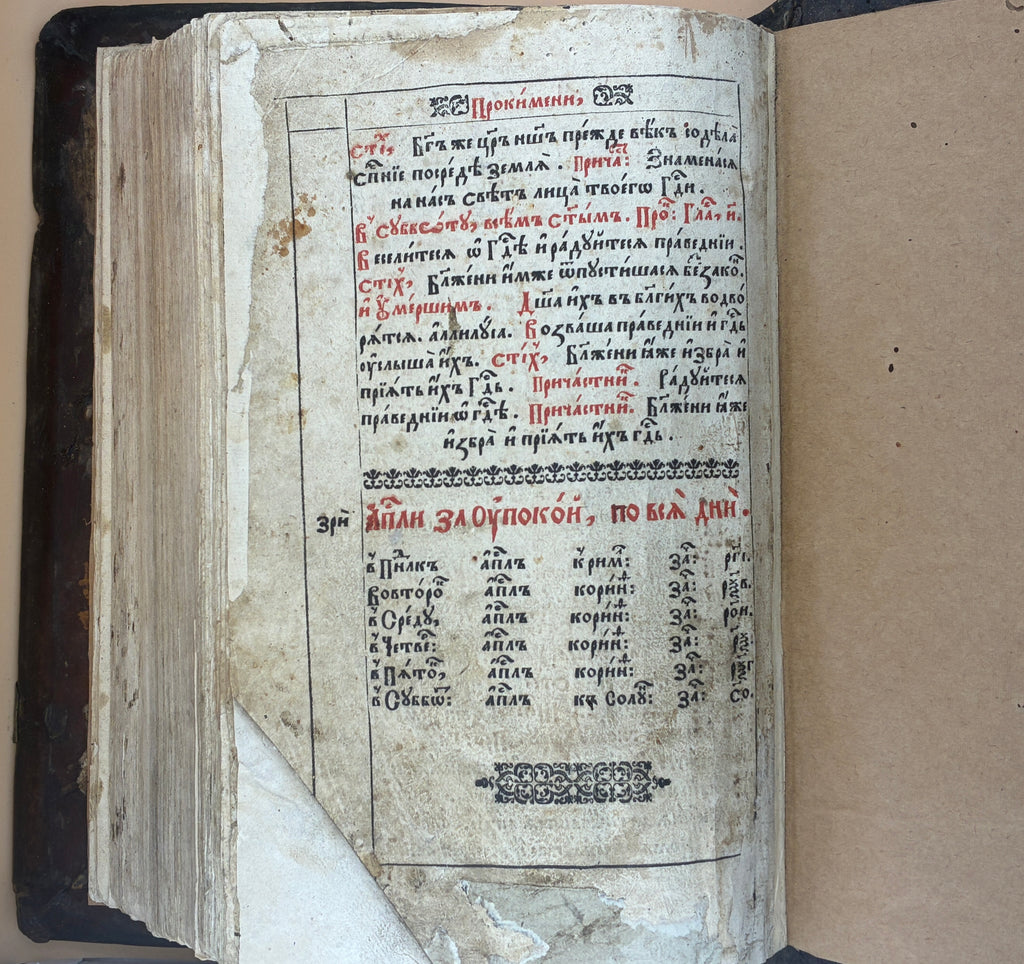 Прокі́мени,
Сті́х, Бг҃ъ же цр҃ь нш҃ъ пре́жде вѣ́къ содѣ́ла
сп҃ніе посредѣ̀ землѧ̀. Прича́: Знаменасѧ
на на́съ свѣ́тъ лица̀ твоегѡ Гд҇и.
В суббѡту, всѣ́мъ ст҃ы́мъ. Про́: Гла́, и҃.
Весели́тесѧ ѡ Гд҇ѣ и ра́дуйтесѧ пра́веднїи.
Стїх, Бл҃же́ни и́мже ѿпусти́шасѧ беззако́.
и ᲂу҆ме́ршимъ. Дш҃а и́хъ въ бл҃ги́хъ водво
рѧ́тсѧ. аллилу́са. Возва́ша пра́веднїи и гд҇ь
ᲂу҆слыша и́хъ. Сті́х, Бл҃же́ни ꙗ́же избра̀ и
прїѧ́тъ и́хъ Гд҇ь. Прича́стни. Ра́дуйтесѧ
пра́веднїи ѡ гд҇ѣ. Прича́стни. Бл҃же́ни ꙗ́же
избра̀ и прїѧ́тъ и́хъ гд҇ь.
зрѝ Ап҇ли за ᲂу҆поко́й, по всѧ̀ днѝ.
в Пн҃лкъ ап҇лъ к рим: за҇:
Вовто́ро ап҇лъ кори́н: за҇:
в Сре́ду, ап҇лъ кори́н: за҇: рои.
в Четве́: ап҇лъ кори́н: за҇:
в Пѧ́то, ап҇лъ кори́н: за҇:
в Суббѡ: ап҇лъ къ Солу́: за҇: со.